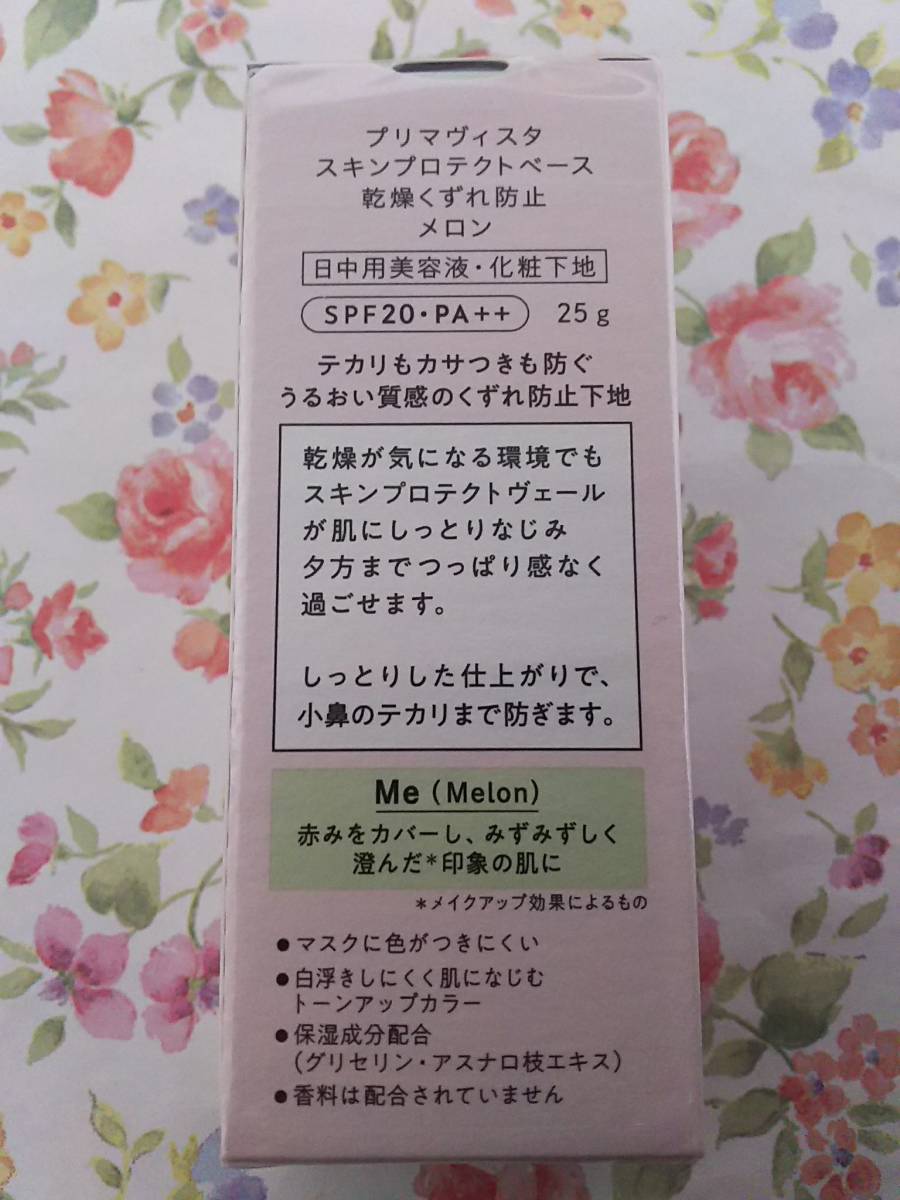 プリマヴィスタ
スキンプロテクトベース
乾燥くずれ防止
メロン
日中用美容液・化粧下地
SPF20・PA++ 25g
テカリもカサつきも防ぐ
うるおい質感のくずれ防止下地
乾燥が気になる環境でも
スキンプロテクトヴェール
が肌にしっとりなじみ
夕方までつっぱり感なく
過ごせます。
しっとりした仕上がりで、
小鼻のテカリまで防ぎます。
Me (Melon)
赤みをカバーし、みずみずしく
澄んだ*印象の肌に
*メイクアップ効果によるもの
●マスクに色がつきにくい
●白浮きしにくく肌になじむ
トーンアップカラー
●保湿成分配合
(グリセリン・アスナロ枝エキス)
●香料は配合されていません